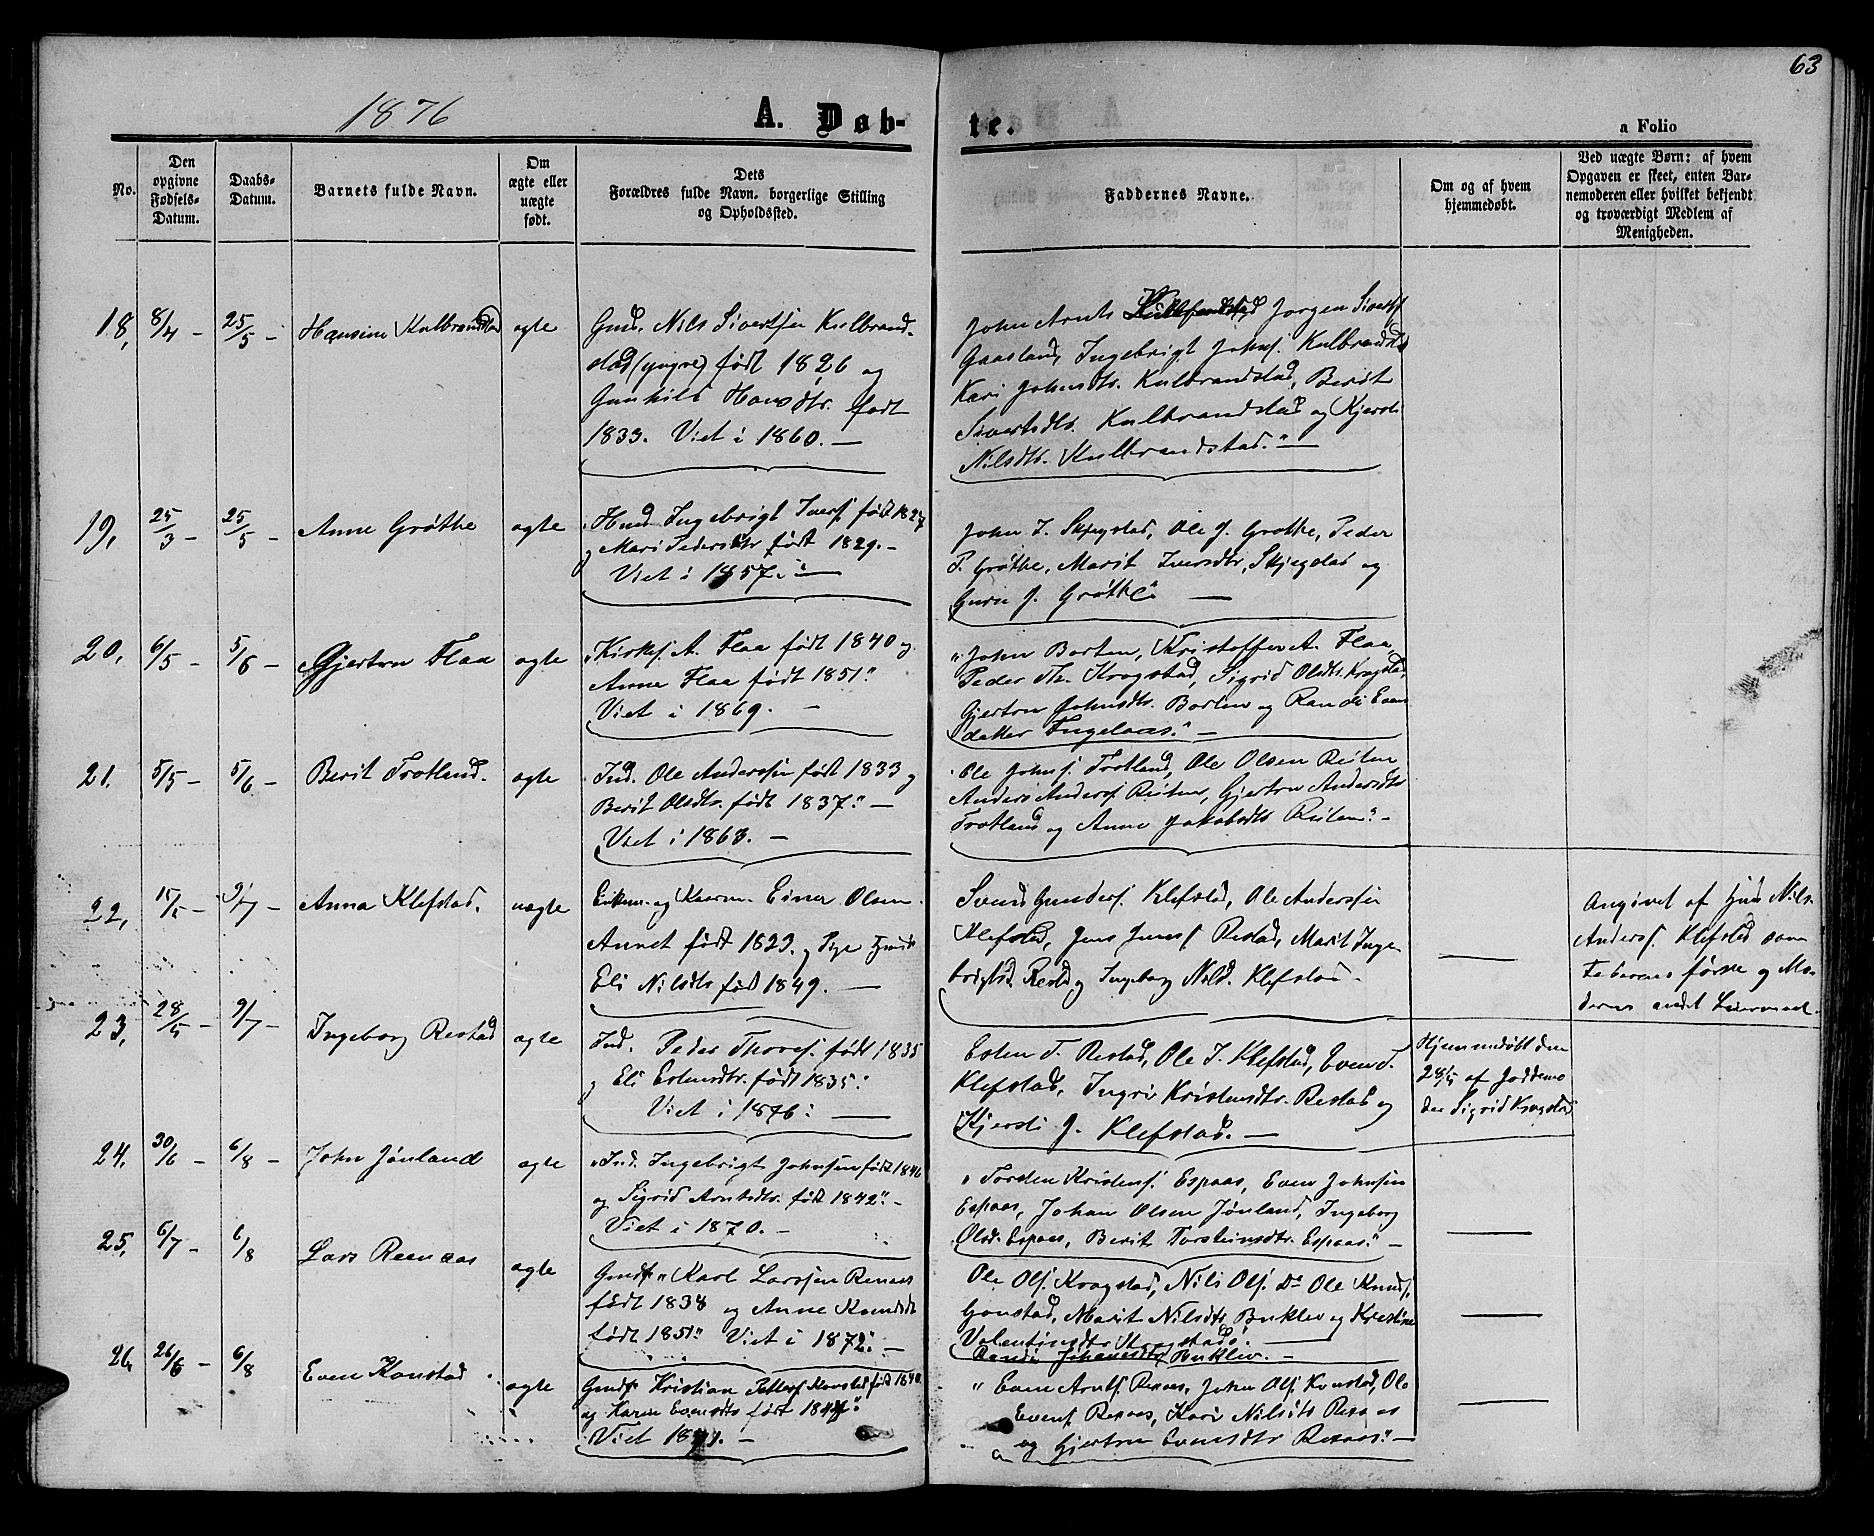 63
1876
A. Døb-
te.
a Folio
No.
Den opgivne Fødsels-Datum.
Daabs-Datum.
Barnets fulde Navn.
Om ægte eller uægte født.
Dets Forældres fulde Navn, borgerlige Stilling og Opholdssted.
Faddernes Navne.
Om og af hvem hjemmedøbt.
Ved uægte Børn: af hvem Opgaven er skeet, enten Barnemoderen eller hvilket bekjendt og troværdigt Medlem af Menigheden.
18, 8/4 - 25/5 - Hansine Kulbrandstad ægte
Gmd. Nils Sivertsen Kulbrand-
stad (yngre) født 1826 og
Gunhild Hansdtr. født
1833. Viet i 1860. —
John Arnts Jorgen Sivertsf
Gaasland, Ingebrigt Johnsf. Kulbrandst
Kari Johnsdtr. Kulbrandstad, Berit
Sivertsdtr. Kulbrandstad og Kjersti
Nilsdtr. Kulbrandstad." —
19, 25/3 - 25/5 - Anne Grøthe ægte
Hmd Ingebrigt Iversf. født 1827
og Mari Pedersdtr født 1829. -
Viet i 1857. —
John I. Skjegstad, Ole J. Grøthe, Peder
P. Grøthe, Marit Iversdtr, Skjegstad og
Guru J. Grøthe —
20, 6/5 - 5/6 - Gjertru Flaa ægte
Kirks. A. Flaa født 1840 og
Anne Flaa født 1851."
Viet i 1869. -
"John Borten, Kristoffer A. Flaa,
Peder Th. Krogstad, Sigrid Olsdtr. Krogstad,
Gjertru Johnsdtr. Borten og Randi Even
datter Engelaas." -
21. 5/5 - 5/6 - Berit Trotland. ægte
Ind. Ole Anderssen født 1833 og
Berit Olsdtr. født 1837." -
Viet i 1863. -
Ole Johnsf. Trotland, Ole Olsen Reiten
Anders Andersf. Reiten, Gjertru Andersdtr
Trotland og Anne Jakobsdtr Reiten" -
22, 15/5 - 9/7 - Anna Klefstad. uægte
Enkem. og Einer Olsen
Annet født 1823. og Pige
Eli Nilsdtr født 1849. —
Svend Gundersf. Klefstad, Ole Anderssen
Klefstad, Jens Jensf Restad, Marit Inge-
brigtsd. Restad og Ingeborg Nilsd. Klefstad -
—
Angivet af Nils
Andersf. Klefstad som
Faderens første og Mo-
derens andet Leiermaal.
23, 28/5 - 9/7 - Ingeborg Restad ægte
Ind. Peder Thoresf. født 1835
og Eli Estensdtr. født 1835."
Viet i 1876. —
Esten T. Restad, Ole I. Klefstad, Even T.
Klefstad, Ingri Kristensdtr. Restad og
Kjersti J. Klefstad. —
Hjemmedøbt den
28/5 af Joddemo
der Sigrid Krogstad
24. 30/6 - 6/8 - John Jønland ægte
"Ind. Ingebrigt Johnsen født 1846
og Sigrid Arntsdtr. født 1842." -
Viet i 1870. -
"Torsten Kristensf. Espaas, Even Johnsen
Espaas, Johan Olsen Jønland, Ingeborg
Olsd. Espaas, Berit Torsteinsdtr. Espaas." -
—
25, 6/7 - 6/8 Lars Reenaas ægte
Gmdf. Karl Larssen Renaas
født 1838 og Anne Knudsdt
født 1851." Viet i 1872. -
Ole Olsf. Krogstad, Nils Olsf. Do Ole Knudsf.
Gonstad, Marit Nilsdtr, Buklev og Kristine
Valentinsdtr Krogstad." —
Randi Johansdtr Huklev. -
—
26, 26/6 - 6/8 Even Konstad. ægte
Gmdf. Kristian Pettersf Konstad født 1840
og Karen Evensdtr født 1847."
Viet -
"Even Arntsf. Renaas, John Olsf Konstad, Ole
Evensf. Renaas, Kari Nilsdtr Renaas
og Gjertru Evensdtr Renaas." -
—